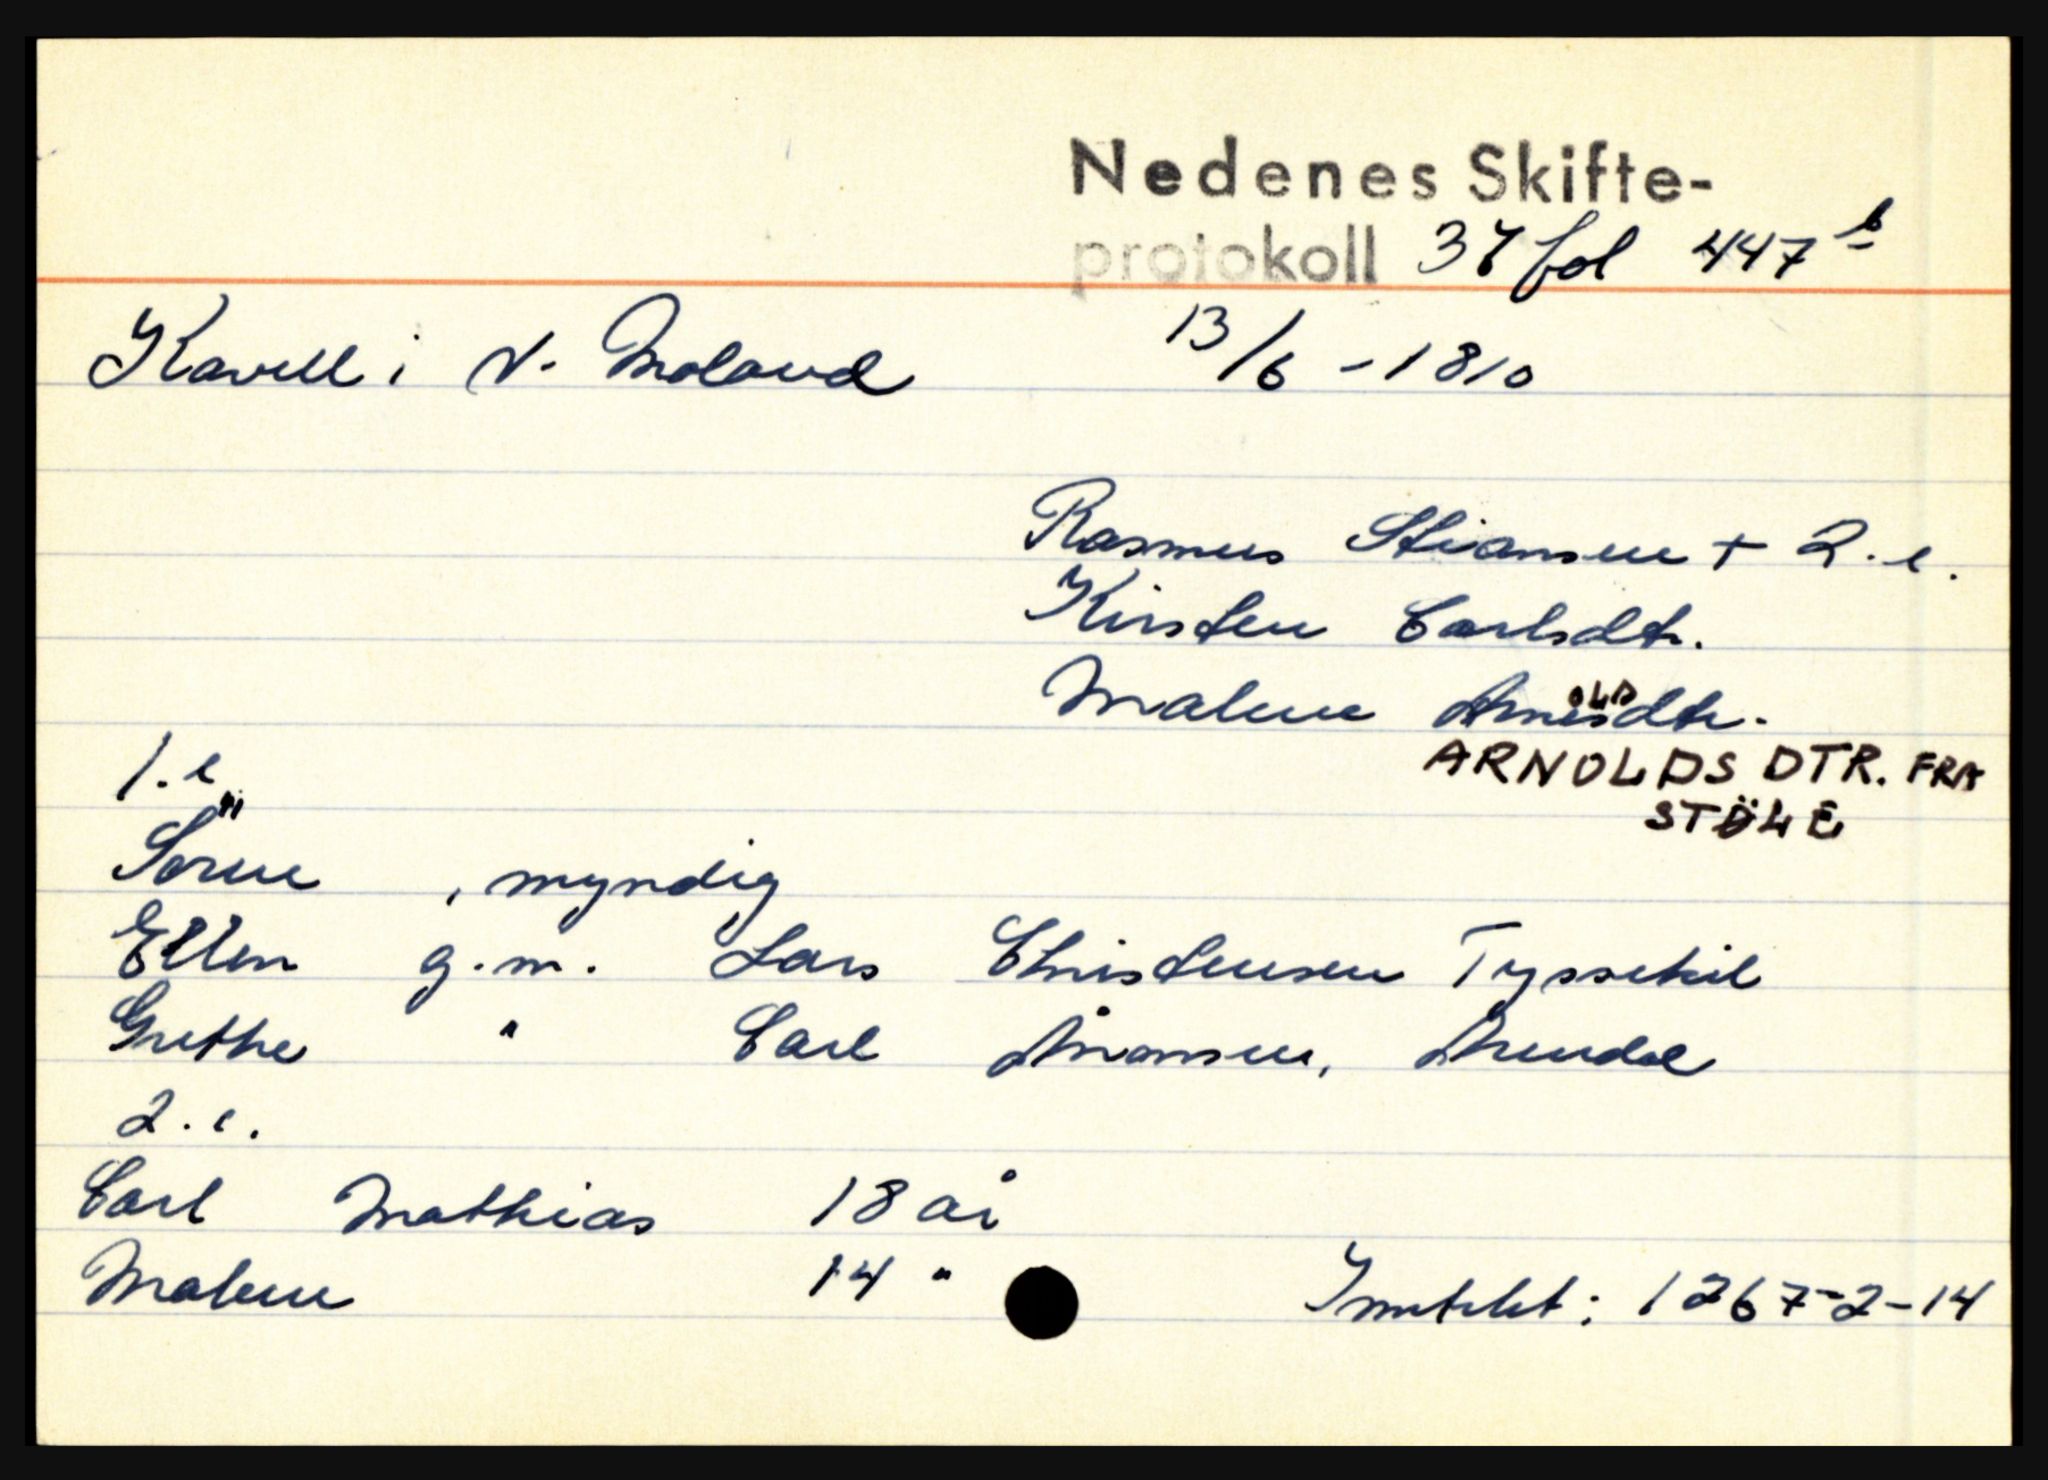 Nedenes Skifte-
protokoll 37 fol 447 b
Kavell i V. Moland 13/6 - 1810
Rasmus Stiansen + 2. e.
Kirsten Carlsdtr.
Malene Arnoldsdtr.
ARNOLDSDTR. FRA
STÖLE
1. e
Sören , myndig
Ellen g.m. Lars Christensen Tyssekil
Grethe " Carl Ånonsen, Arendal
2. e.
Carl Mathias 18 år
Malene 14 "
Inntekt: 1267-2-14